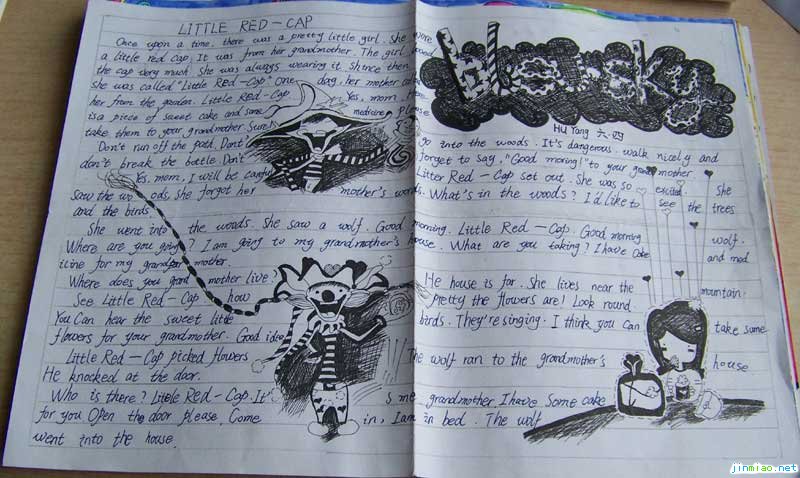 LITTLE RED-CAP
Once upon a time, there was a pretty little girl. She wore
a little red cap. It was from her grandmother. The girl loved
the cap very much. She was always wearing it. Shince then
she was called "Little Red-Cap" One day, her mother called
her from the garden. Little Red-Cap Yes, mom. Here
is a piece of sweet cake and some medicine, please
take them to your grandmother. Sure!
Hu Yang 六.四
Don't run off the path. Don't go into the woods. It's dangerous. walk nicely and
don't break the bottle. Don't forget to say, "Good moring!" to your grandmother
Yes, mom, I will be careful Litter Red-Cap set out. She was so excited. She
saw the wo ods, she forgot her mother's words. What's in the woods? I'd like to see the trees
and the birds
She went into the woods. She saw a wolf. Good morning. Little Red-Cap. Good morning wolf.
Where are you going? I am going to my grandmother's house. What are you taking? I have cake and med
icine for my grandmother.
Where does you grand mother live? He house is far. She lives near the mountain.
See Little Red-Cap how Pretty the flowers are! Look round
You Can hear the sweet little birds. They're singing. I think you can take some
flowers for your grandmother. Good idea
Little Red-Cap picked flowers The wolf ran to the grandmother's house
He knocked at the door.
Who is there? Little Red-Cap. It's me grandmother I have Some cake
for you Open the door please. Come in, I am in bed. The wolf
went into the house.
jinmiao.net